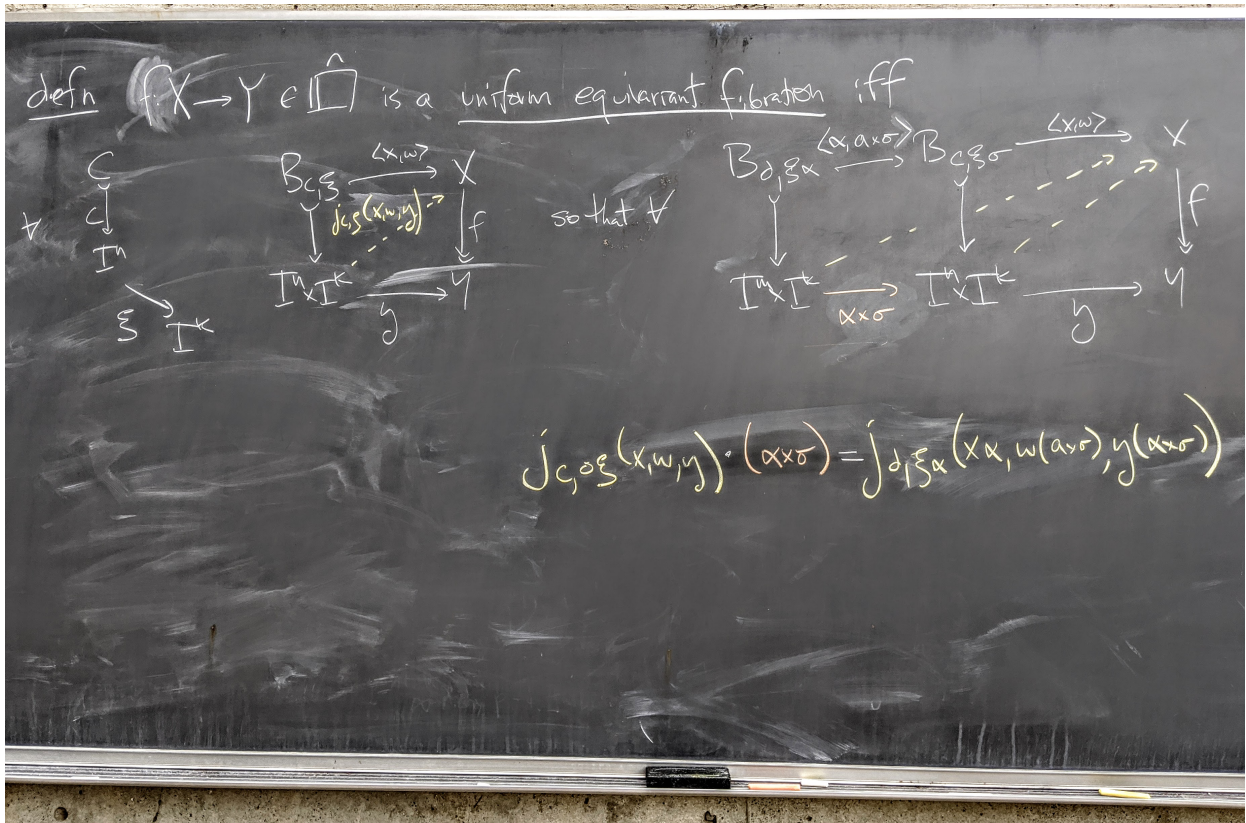 defn f: X → Y ∈ □̂ is a uniform equivariant fibration iff
∀ C c Iⁿ ξ Iᵏ
B_{c,ξ} ⟨x,w⟩ X
j_{c,ξ}(x,w,y) f
Iⁿ×Iᵏ y Y
so that ∀
B_{d,ξα} ⟨α,a×σ⟩ B_{c,ξσ} ⟨x,w⟩ X
f
Iᵐ×Iᵏ α×σ Iⁿ×Iᵏ y Y
j_{c,σξ}(x,w,y)·(α×σ) = j_{d,ξα}(xα, w(a×σ), y(α×σ))